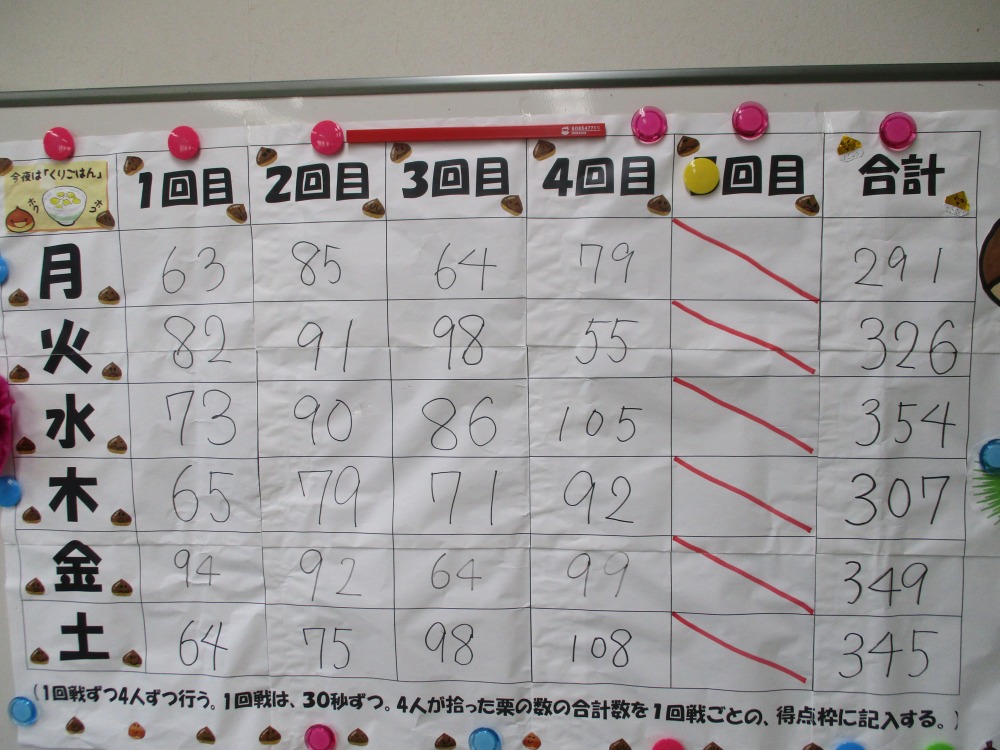 今夜は「くりごはん」
ホク
ホク
1回目 2回目 3回目 4回目 回目 合計
月 63 85 64 79 291
火 82 91 98 55 326
水 73 90 86 105 354
木 65 79 71 92 307
金 94 92 64 99 349
土 64 75 98 108 345
(1回戦ずつ4人ずつ行う。1回戦は、30秒ずつ。4人が拾った栗の数の合計数を1回戦ごとの、得点枠に記入する。)